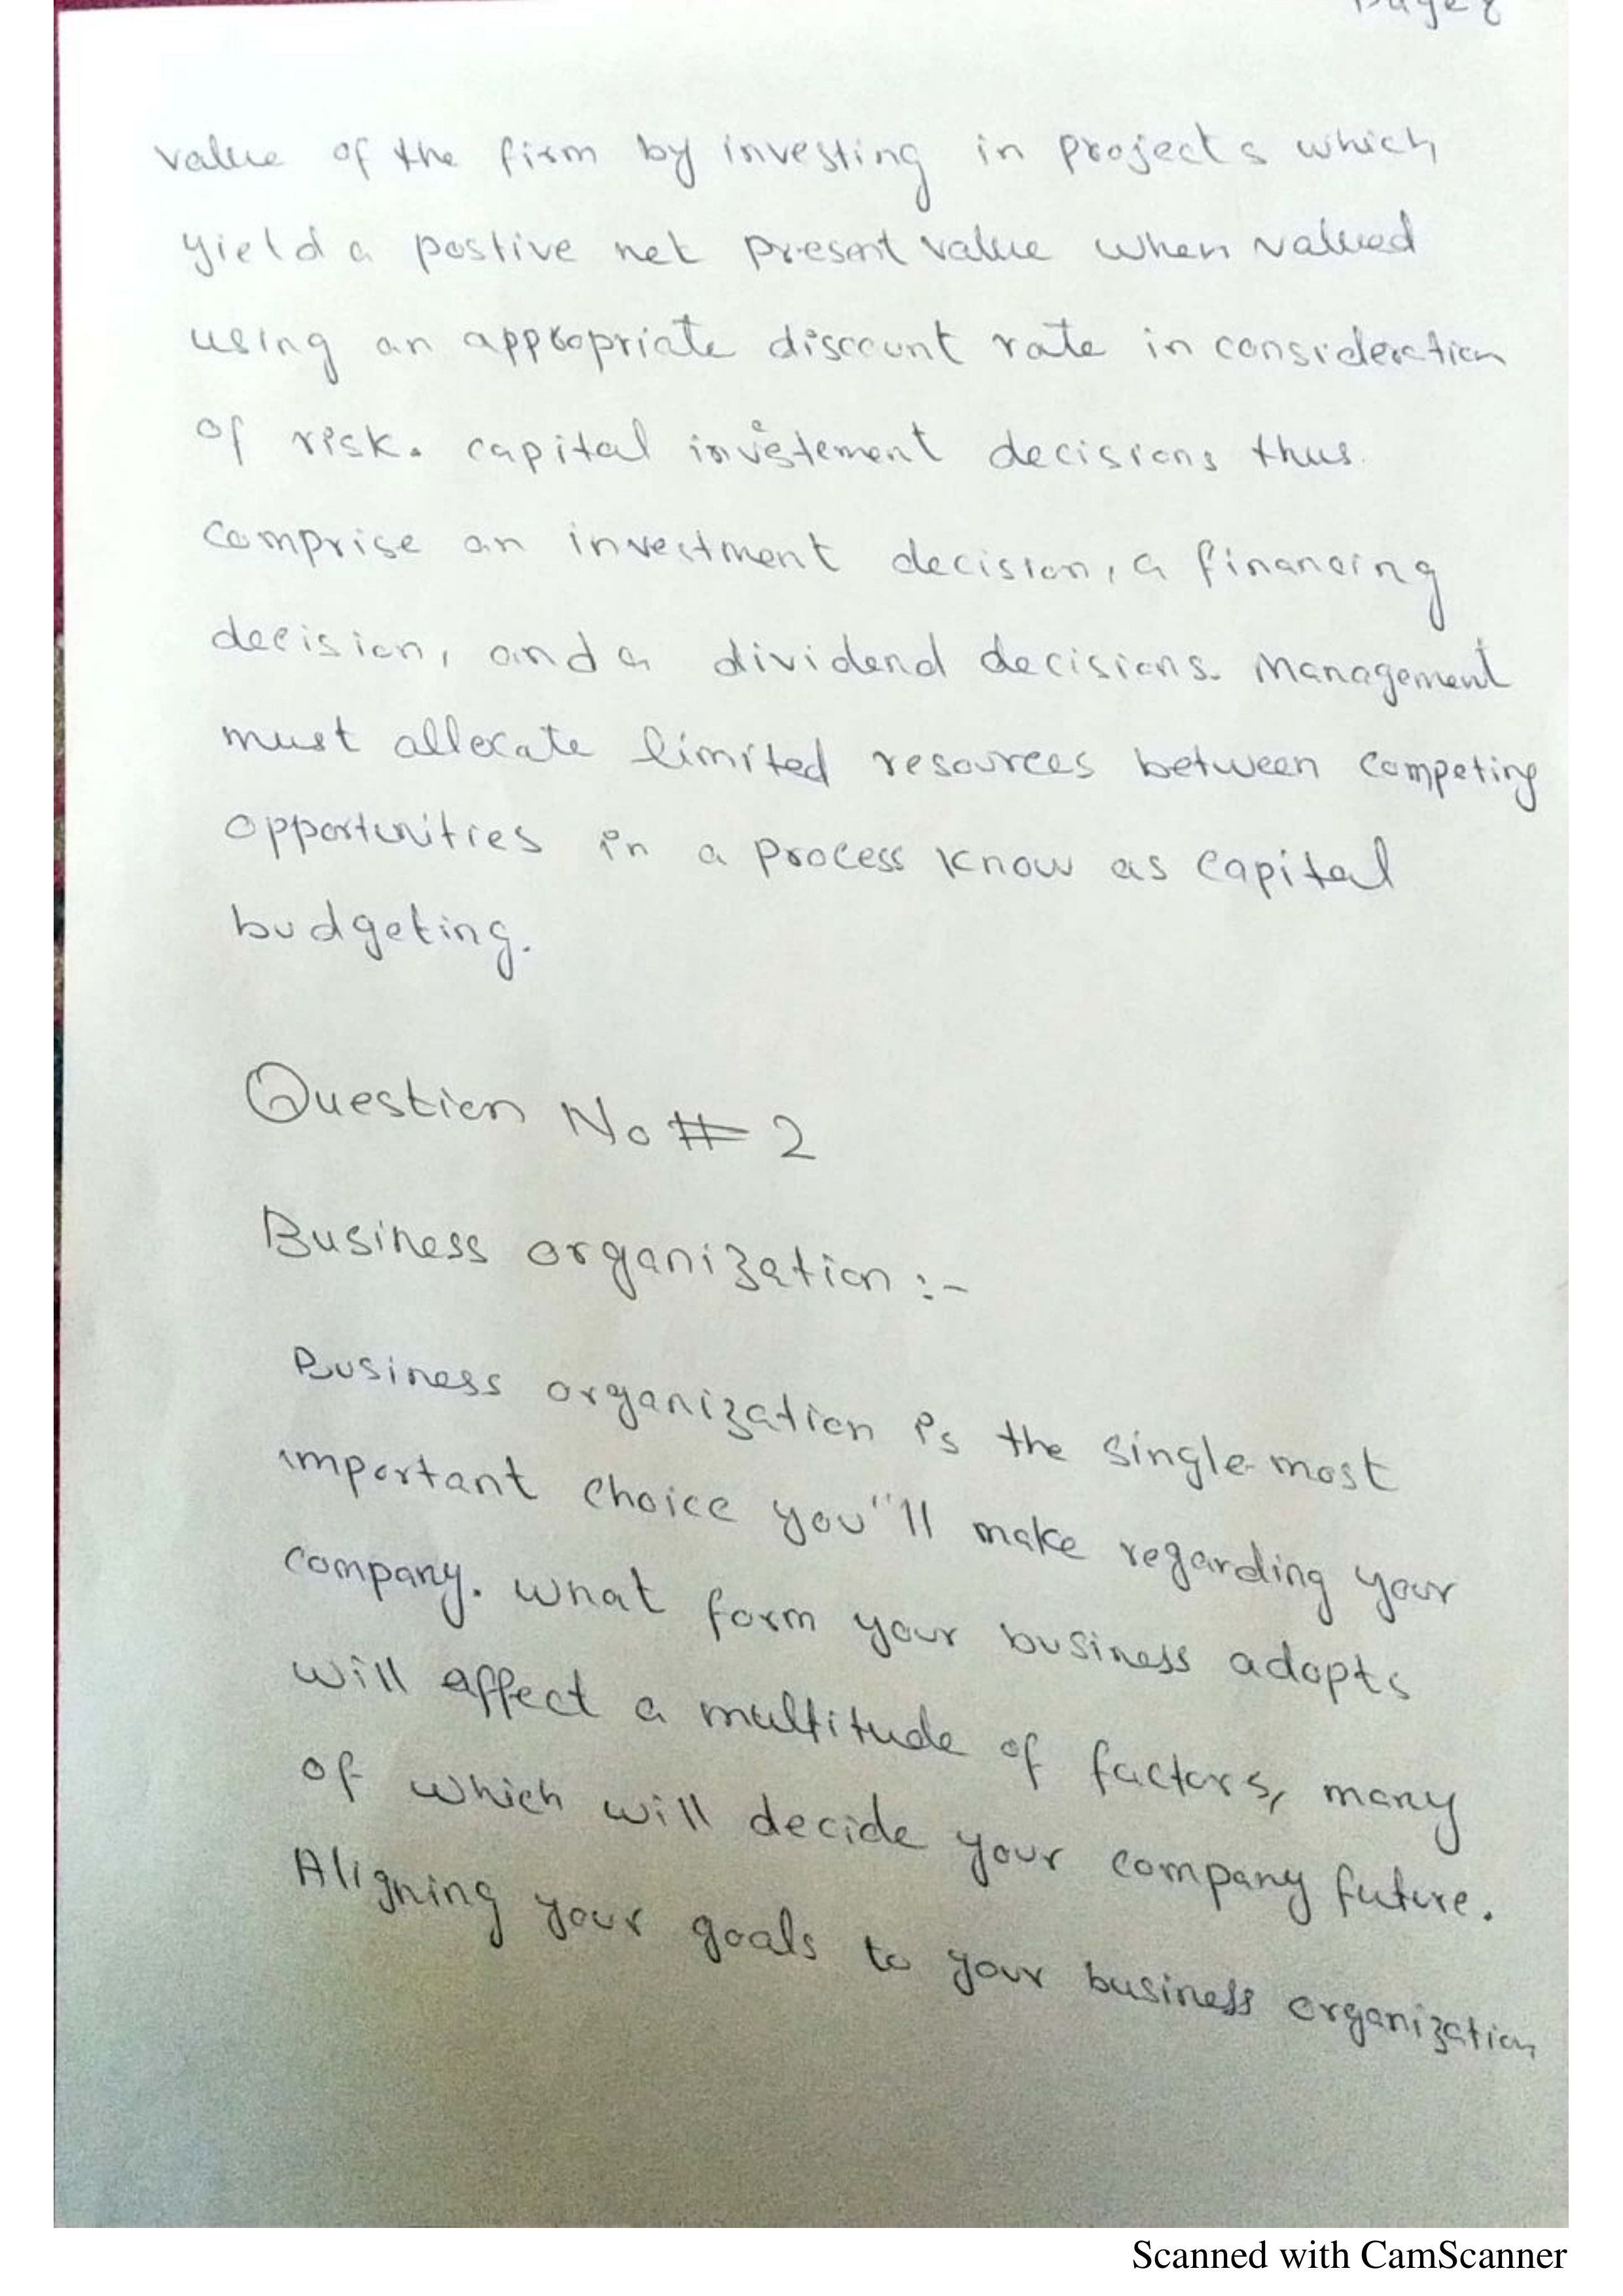 value of the firm by investing in projects which
yield a postive net present value when valued
using an appropriate discount rate in consideration
of risk. capital investement decisions thus
comprise an investment decision, a financing
decision, and a dividend decisions. Management
must allocate limited resources between competing
opportunities in a process know as capital
budgeting.
Question No # 2
Business organization :-
Business organization is the single most
important choice you"ll make regarding your
company. what form your business adopts
will affect a multitude of factors, many
of which will decide your company future.
Aligning your goals to your business organization
Scanned with CamScanner